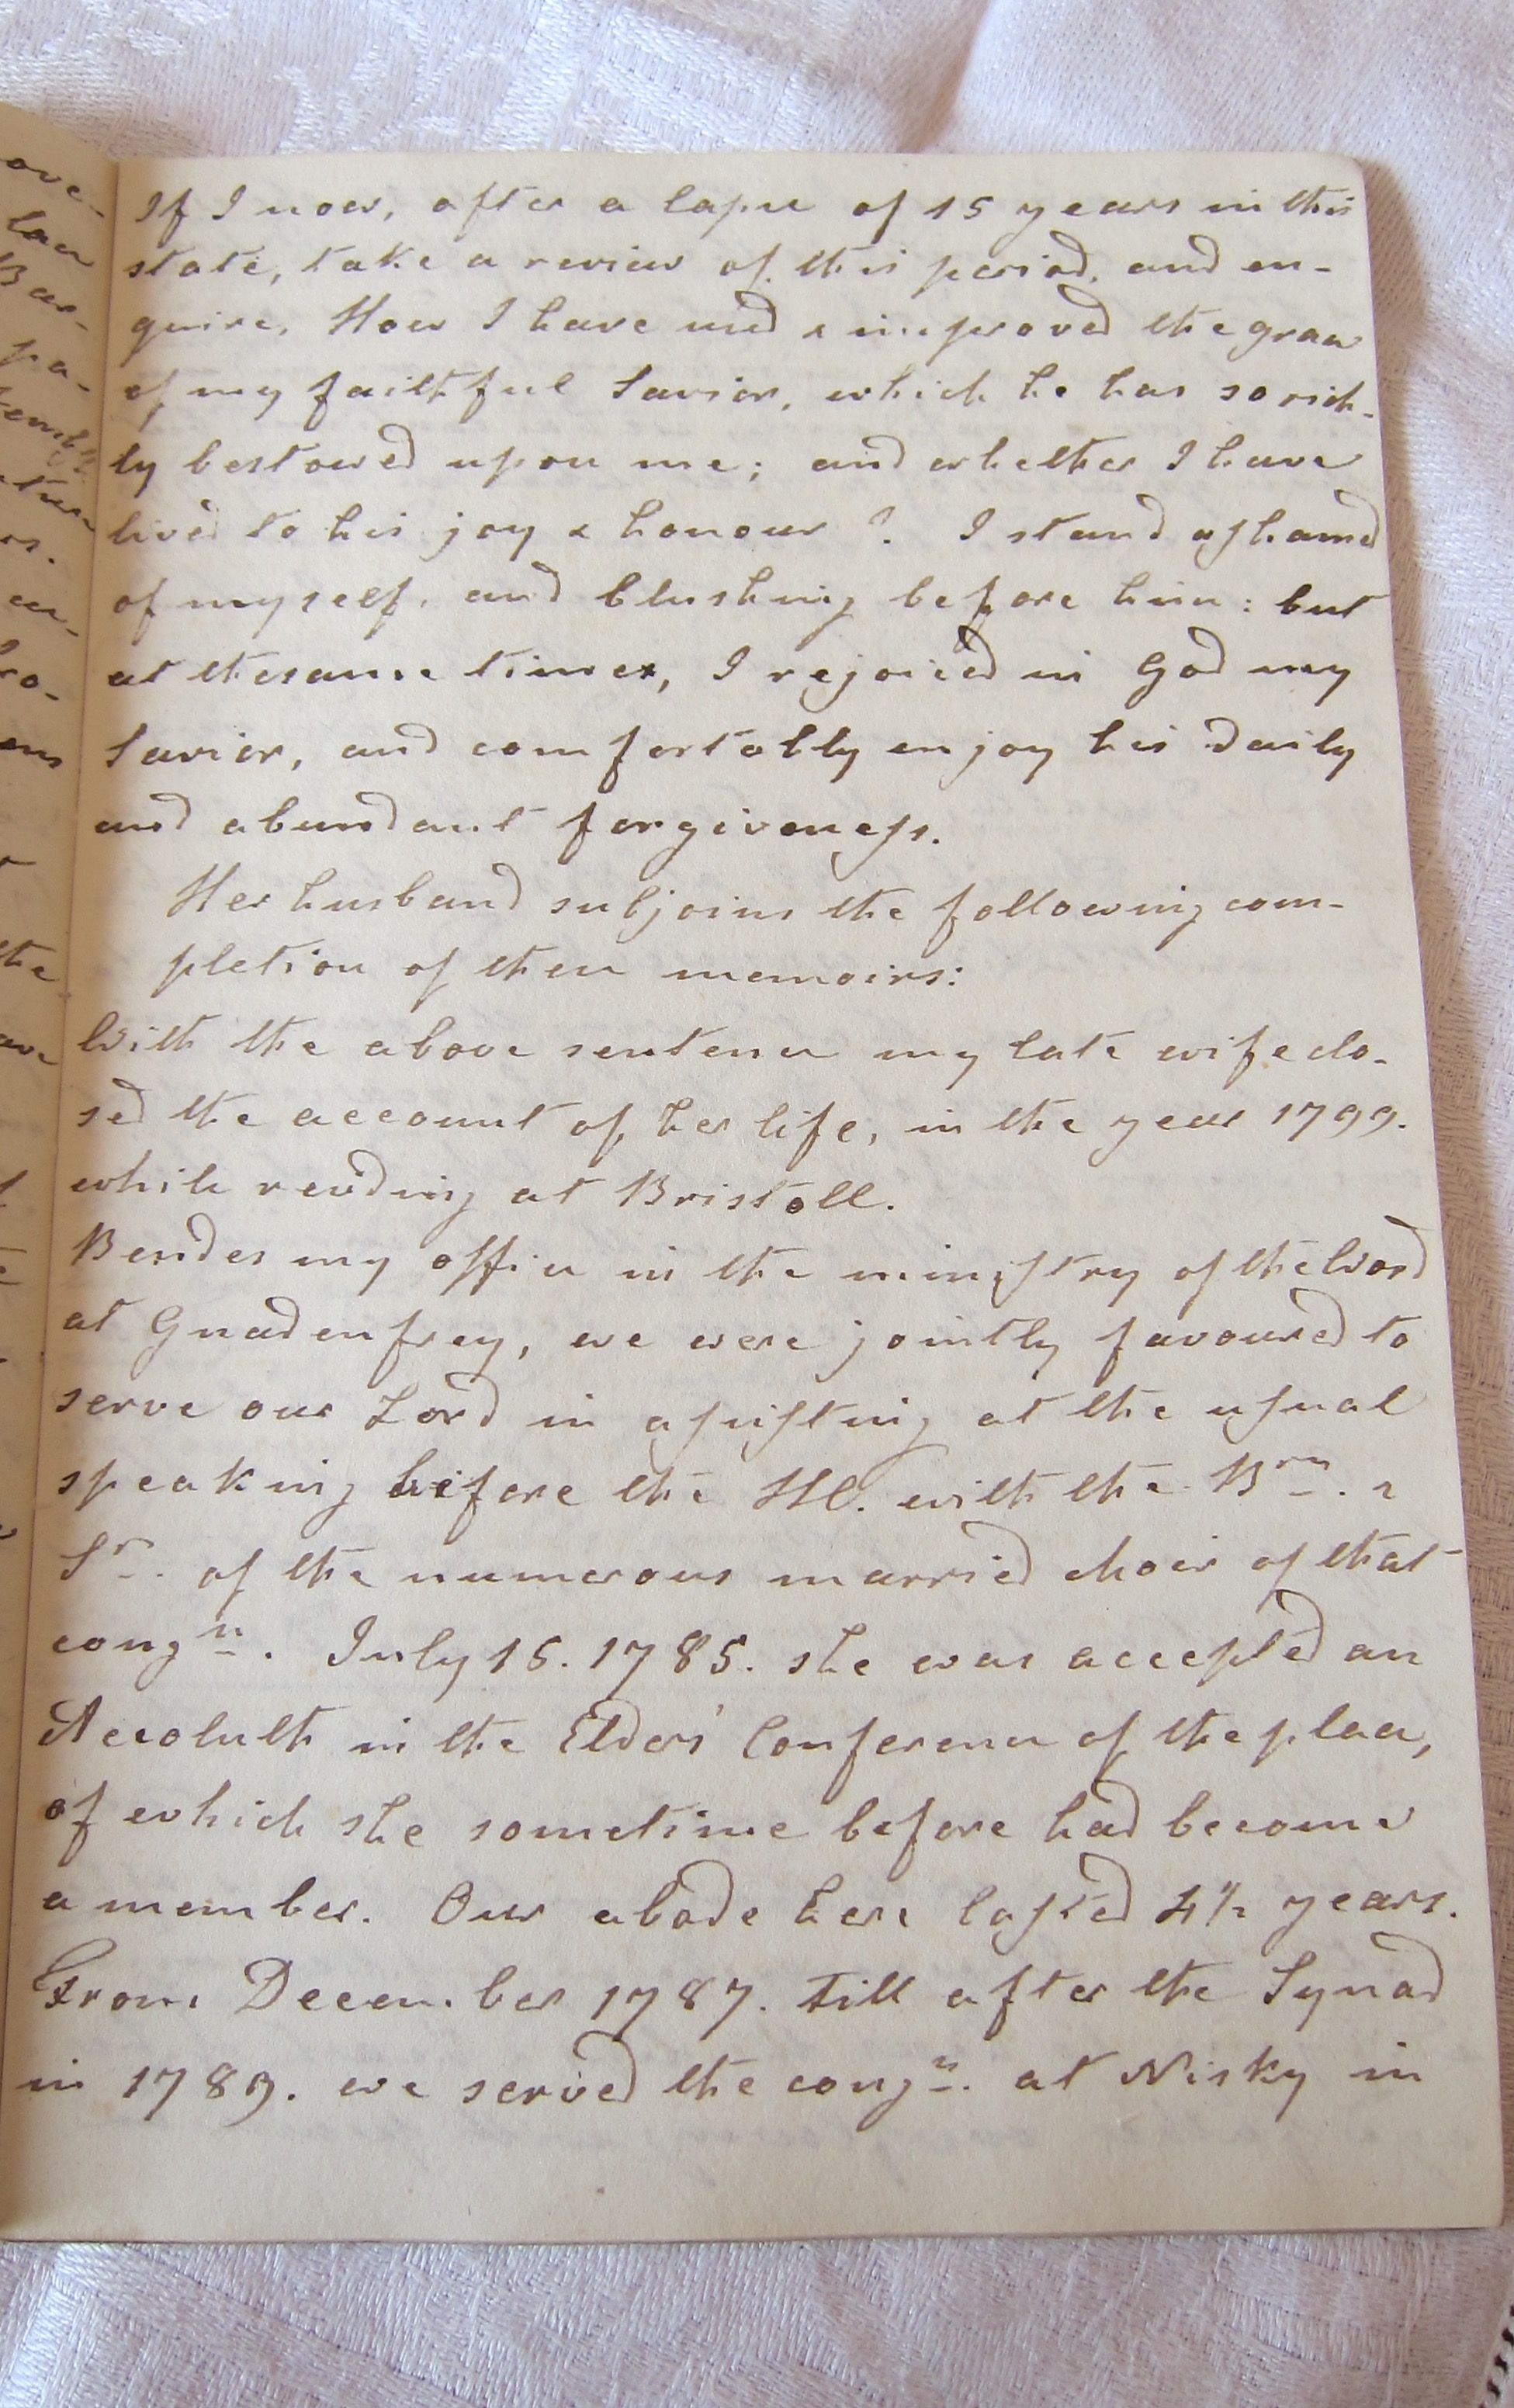 ove-
Bar-
pa-
ro-
the
If I now, after a lapse of 15 years in this
state, take a review of this period, and en-
quire, How I have used & improved the grace
of my faithful Savior, which he has so rich-
ly bestowed upon me; and whether I have
lived to his joy & honour? I stand ashamed
of myself, and blushing before him: but
at the same time, I rejoiced in God my
Savior, and comfortably enjoy his daily
and abundant forgiveness.
Her husband subjoins the following com-
pletion of these memoirs:
With the above sentence my late wife clo-
sed the account of her life, in the year 1799.
while residing at Bristoll.
Besides my office in the ministry of the Word
at Gnadenfrey, we were jointly favoured to
serve our Lord in assisting at the usual
speaking before the Hl. with the Brn. &
Srs. of the numerous married choir of that
congn. July 15. 1785. she was accepted an
Accoluth in the Elders' Conference of the place,
of which she sometime before had become
a member. Our abode here lasted 4½ years.
From December 1787. till after the Synod
in 1789. we served the congn. at Nisky in